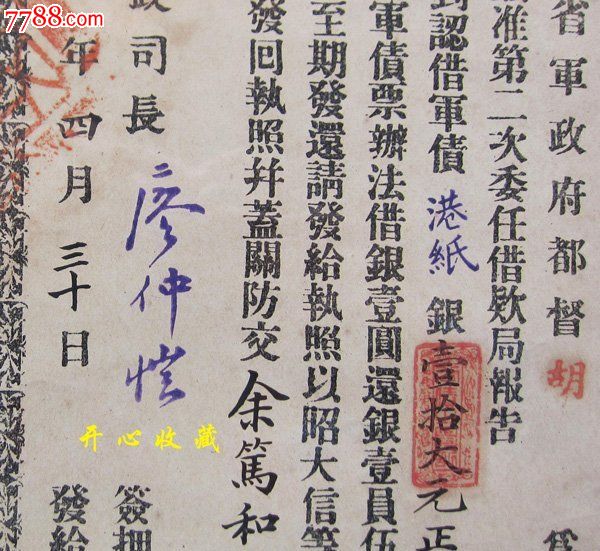 7788.com
為
省軍政府都督胡
准第二次委任借欵局報告
認借軍債港紙銀壹拾大元正
軍債票辦法借銀壹圓還銀壹員伍
至期發還請發給執照以昭大信等
發回執照幷蓋關防交余篤和
司長廖仲愷簽押
年四月三十日發給
开心收藏